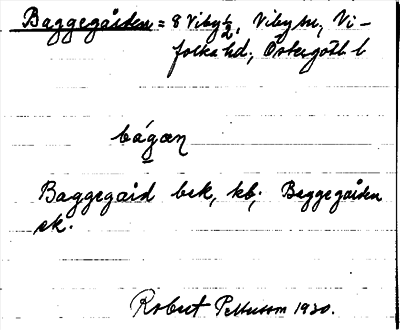 Baggegården = 8 Viby 1/2, Viby sn, Vi-
folka hd, Östergötl. l
bágæn
Baggegård bsk, kb; Baggegården
ek.
Robert Pettersson 1920.